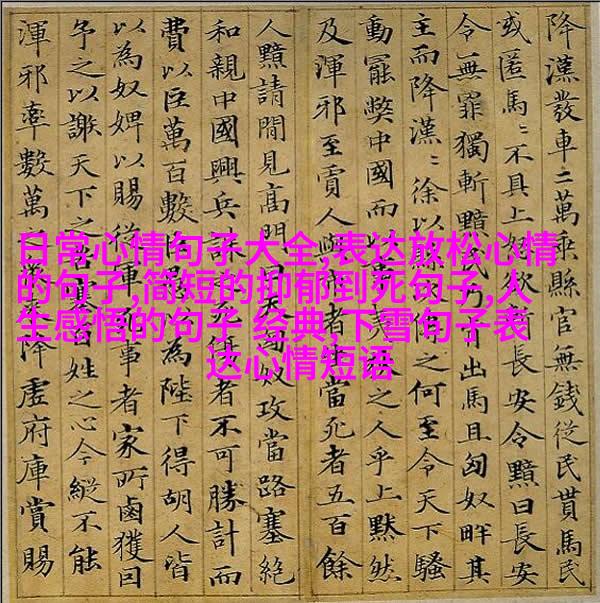 降漢發車二萬乘縣官無錢從民貰馬民
或匿馬〻不具上怒欲長安令黯曰長安
令無罪獨斬黯民乃出馬且匈奴畔其
主而降漢〻徐以縣之何至令天下騷
動罷獘中國而以之人乎上默然
及渾邪至賈人與市者當死者五百餘
人黯請間見高門曰攻當路塞絕
和親中國興兵誅死傷者不可勝計而
費以巨萬百數臣愚為陛下得胡人皆
以為奴婢以賜從軍事者家所鹵獲因
予之以謝天下之百姓之心今縱不能
渾邪率數萬之來降虛府庫賞賜
日常心情句子大全,表达放松心情
的句子,简短的抑郁到死句子,人
生感悟的句子 经典,下雪句子表
达心情短语